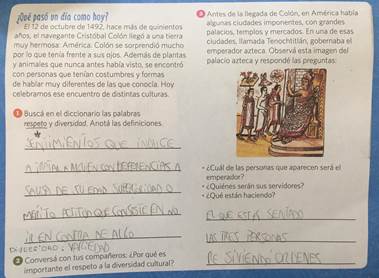 ¿Qué pasó un día como hoy?
El 12 de octubre de 1492, hace más de quinientos
años, el navegante Cristóbal Colón llegó a una tierra
muy hermosa: América. Colón se sorprendió mucho
por lo que tenía frente a sus ojos. Además de plantas
y animales que nunca antes había visto, se encontró
con personas que tenían costumbres y formas
de hablar muy diferentes de las que conocía. Hoy
celebramos ese encuentro de distintas culturas.
1 Buscá en el diccionario las palabras
respeto y diversidad. Anotá las definiciones.
SENTIMIENTOS QUE INDUCE
A TRATAR A ALGUIEN CON DEFERENCIAS A
CAUSA DE SU EDAD SUPERIORIDAD O
MERITO ACTITUD QUE CONSISTE EN NO
IR EN CONTRA DE ALGO
DIVERSIDAD: VARIEDAD
2 Conversá con tus compañeros: ¿Por qué es
importante el respeto a la diversidad cultural?
3 Antes de la llegada de Colón, en América había
algunas ciudades imponentes, con grandes
palacios, templos y mercados. En una de esas
ciudades, llamada Tenochtitlán, gobernaba el
emperador azteca. Observá esta imagen del
palacio azteca y respondé las preguntas:
• ¿Cuál de las personas que aparecen será el
emperador?
• ¿Quiénes serán sus servidores?
• ¿Qué están haciendo?
EL QUE ESTÁ SENTADO
LAS TRES PERSONAS
RECIVIENDO ORDENES